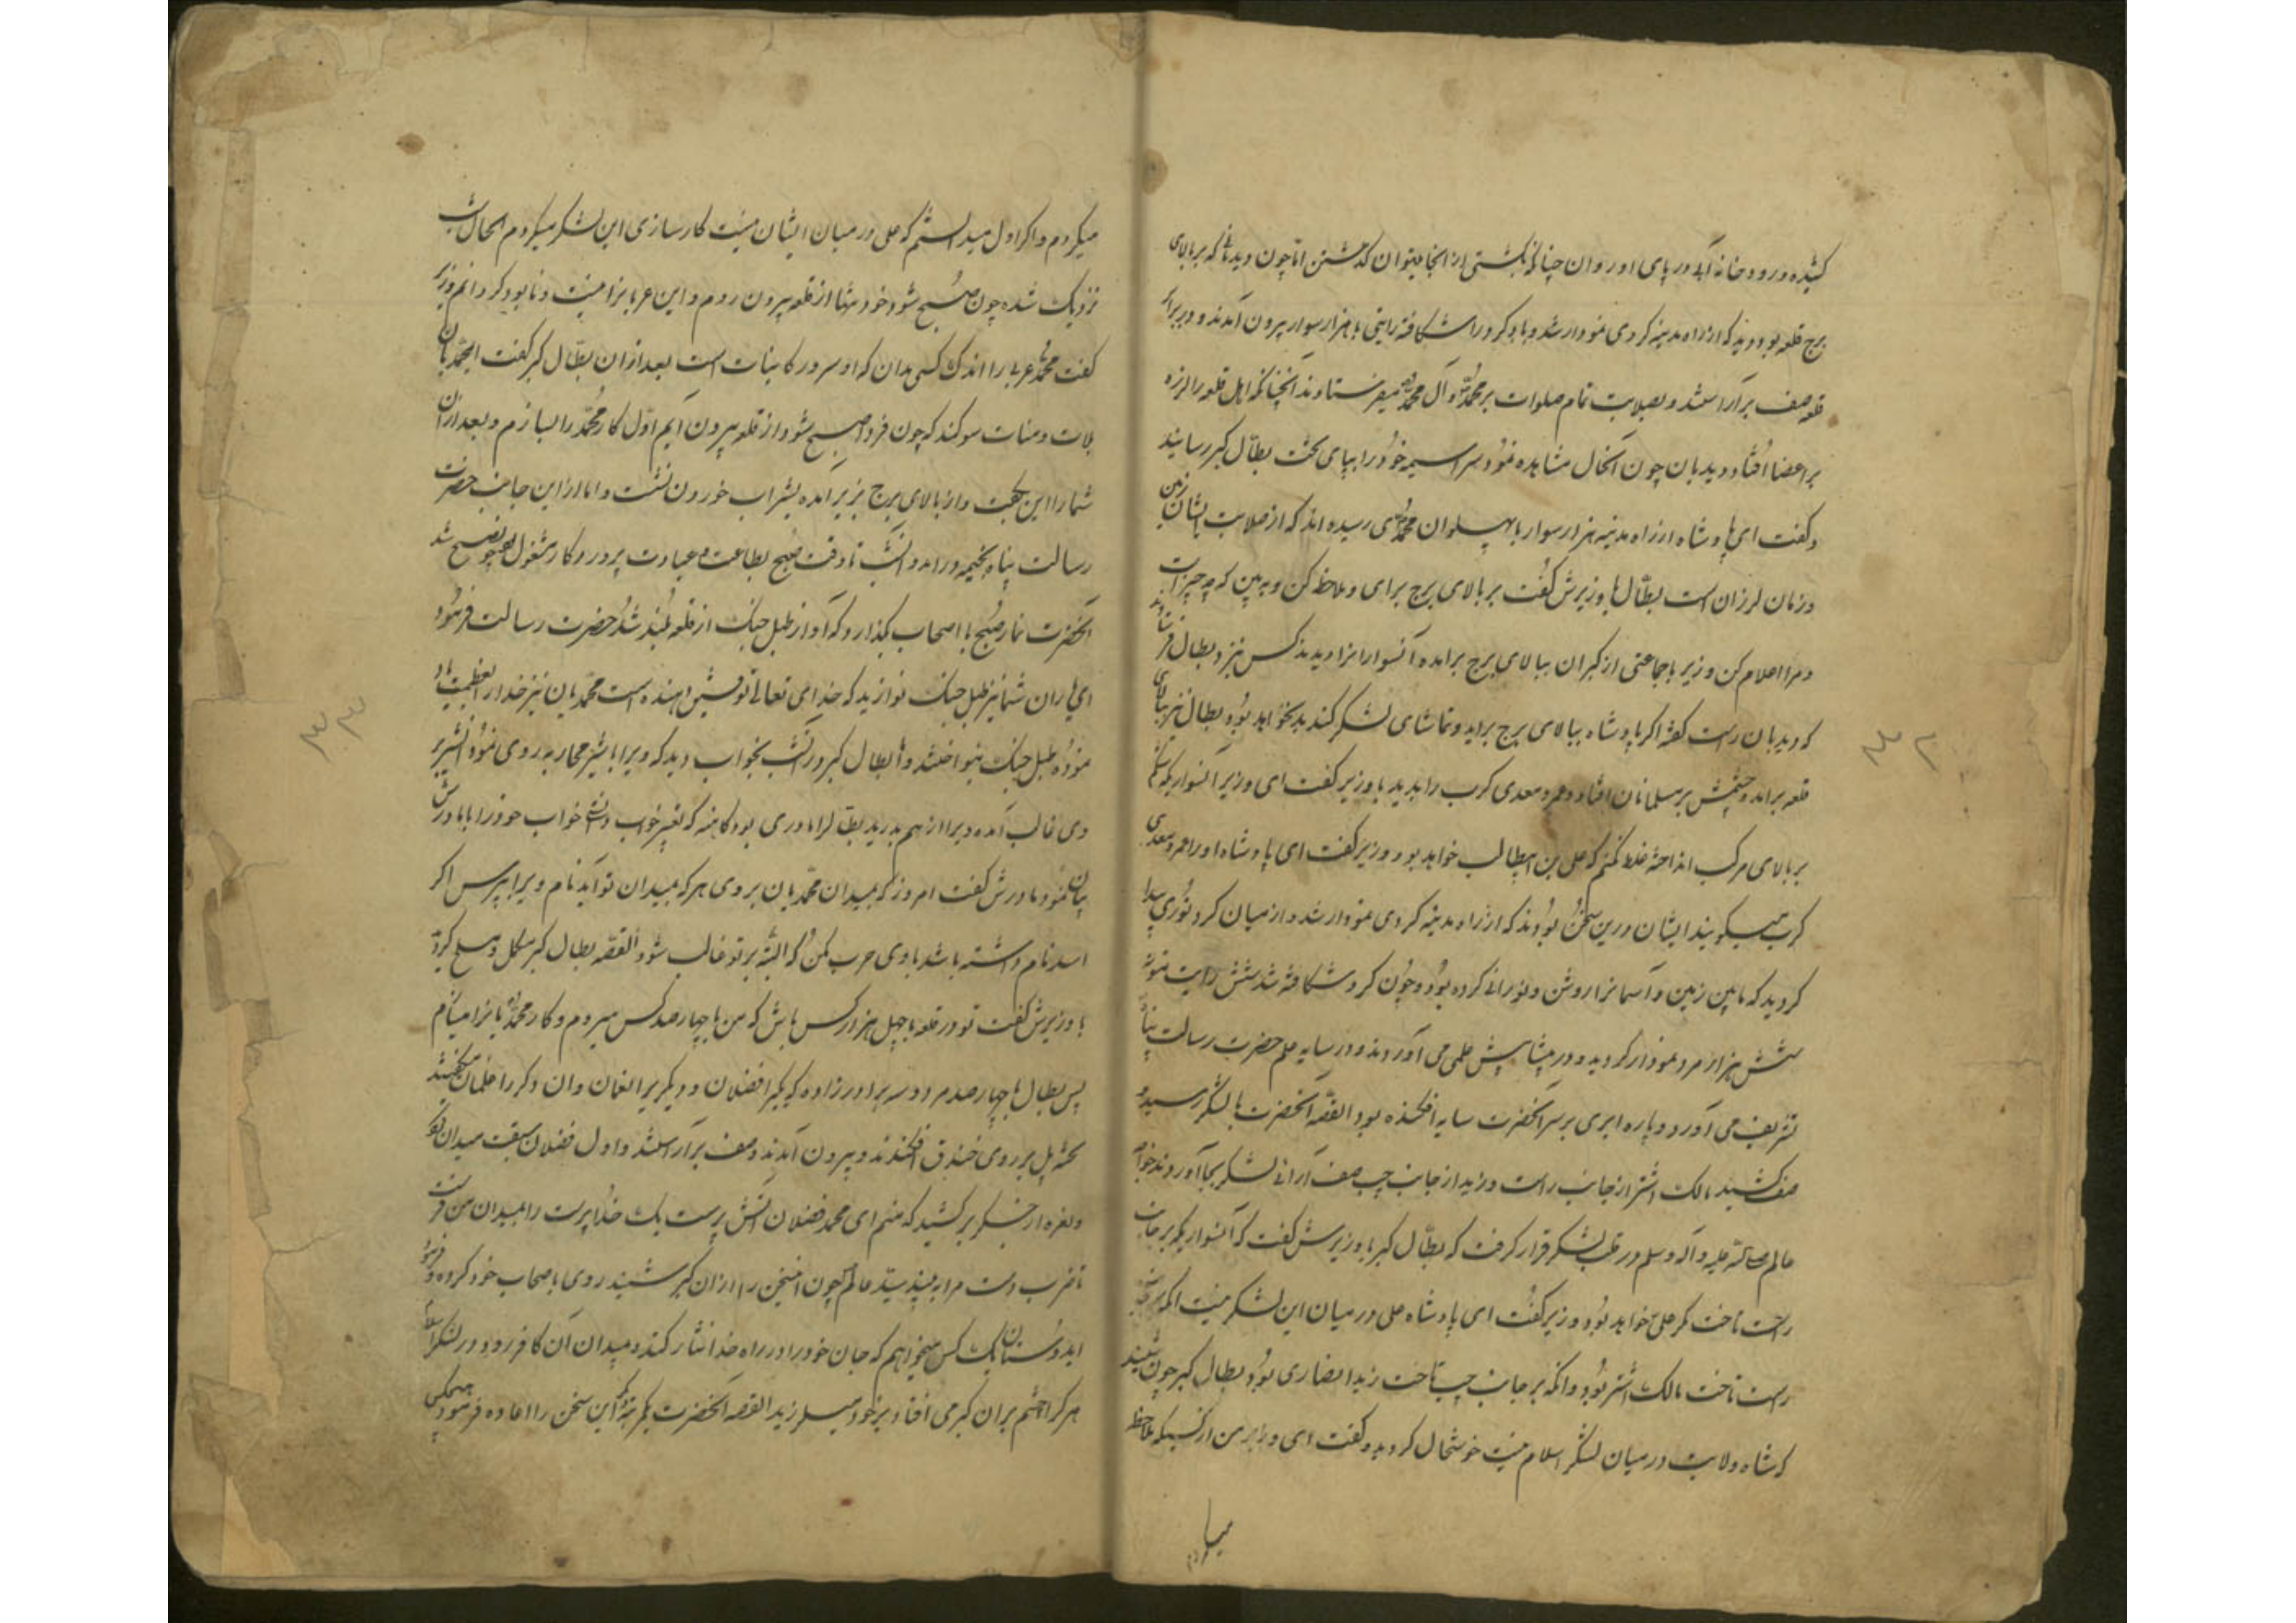 کشیده و رودخانه آبی در پای او روان چنانکه بکشتی از انجا میتوان گذشتن اما چون دیدبانی که بر بالای
برج قلعه بود دید که از راه مدینه گردی نمودار شد و باد گرد را شکافته رایتی با هزار سوار بیرون آمدند و در برابر
قلعه صف برآراستند و بصلابت تمام صلوات بر محمد و آل محمد میفرستادند آنچنانکه اهل قلعه را لرزه
بر اعضا افتاد دیدبان چون آنحال مشاهده نمود سراسیمه خود را بپای تخت بطال گبر رسانید
و گفت ای پادشاه از راه مدینه هزار سوار با پهلوان محمدی رسیده اند که از صلابت ایشان زمین
و زمان لرزان است بطال با وزیرش گفت بر بالای برج برای و ملاحظه کن و به بین که چه چیز است
و مرا اعلام کن وزیر با جماعتی از گبران ببالای برج برامده آنسوارانرا دیدند کس بنزد بطال فرستاد
که دیدبان راست گفته اگر پادشاه ببالای برج براید و تماشای لشکر کند بد نخواهد بود بطال نیز ببالای
قلعه برامد چشمش بر مسلمانان افتاد و عمرو معدی کرب را بدید با وزیر گفت ای وزیر آنسواریکه شکم
بر بالای مرکب انداخته غلط نکنم که علی بن ابیطالب خواهد بود وزیر گفت ای پادشاه او را عمرو معدی
کرب میگویند ایشان درین سخن بودند که از راه مدینه گردی نمودار شد و از میان گرد نوری پیدا
گردید که مابین زمین و آسمانرا روشن و نورانی کرده بود و چون گرد شکافته شد شش رایت
شش هزار مرد نمودار گردید و در پیشاپیش علمی می آوردند و در سایه علم حضرت رسالت پناه
تشریف می آورد و پاره ابری بر سر آنحضرت سایه افکنده بود القصه آنحضرت با لشکر رسید و
صف کشید مالک اشتر از جانب راست و زید از جانب چپ صف آرائی لشکر بجا آوردند خواجه
عالم صلی الله علیه و آله وسلم در قلب لشکر قرار گرفت که بطال گبر با وزیرش گفت که آنسواریکه بر جانب
راست تاخت گر علی خواهد بود وزیر گفت ای پادشاه علی در میان این لشکر نیست آنکه بر جانب
راست تاخت مالک اشتر بود و آنکه بر جانب چپ تاخت زید انصاری بود بطال گبر چون شنید
که شاه ولایت در میان لشکر اسلام نیست خوشحال گردید و گفت ای وزیر من از کسیکه ملاحظه
میکردم
۳۲
میکردم و اگر اول میدانستم که علی در میان ایشان نیست کارسازی این لشکر میکردم الحال شب
نزدیک شده چون صبح شود خود تنها از قلعه بیرون روم و این عربانرا نیست و نابود گردانم وزیر
گفت محمد عربی را اندک کسی مدان که او سرور کاینات است بعد از ان بطال گبر گفت ای محمدیان
بلات و منات سوگند که چون فردا صبح شود از قلعه بیرون آیم اول کار محمد را بسازم و بعد ازان
شما را این بگفت و از بالای برج بزیر امده بشراب خوردن نشست و اما ازاین جانب حضرت
رسالت پناه بخیمه درامد و آنشب تا وقت صبح بطاعت و عبادت پروردگار مشغول بود چون صبح شد
آنحضرت نماز صبح با اصحاب گذارد که آواز طبل جنگ از قلعه بلند شد حضرت رسالت فرمود
ای یاران شما نیز طبل جنگ نوازید که خدای تعالی توفیق دهنده است محمدیان نیز خدا را بعظمت یاد
نموده طبل جنگ بنواختند و اما بطال گبر در آنشب بخواب دید که ویرا با شیر محاربه روی نمود آنشیر بر
وی غالب آمده ویرا از هم بدرید بطال را مادری بود کاهنه که تعبیر خواب دانستی خواب خود را با مادرش
بیان نمود مادرش گفت امروز که بمیدان محمدیان بروی هر که بمیدان تو آید نام ویرا بپرس اگر
اسد نام داشته باشد با وی حرب مکن که البته بر تو غالب شود القصه بطال گبر مکمل و مسلح گردید
با وزیرش گفت تو در قلعه با چهل هزار کس باش که من با چهارصد کس میروم و کار محمدیانرا میسازم
پس بطال با چهارصد مرد و سه برادر زاده که یکیرا فضلان و دیگریرا نعمان وان دگر را غلمان میگفتند
تخته پل بر روی خندق افکندند و بیرون آمدند و صف برآراستند و اول فضلان سبقت میدان نمود
و نعره از جگر برکشید که منم ای محمد فضلان آتش پرست یک خداپرست را بمیدان من فرست
تا ضرب دست مرا به بیند سید عالم چون این سخن را ازان گبر شنید روی باصحاب خود کرده فرمود
ایدوستان یک کس میخواهم که جان خود را در راه خدا نثار کند و میدان آن کافر رود و در لشکر اسلام
هر کرا چشم بران گبر می افتاد بر خود میلرزید القصه آنحضرت یکمرتبه دیگر این سخن را اعاده فرمود هیچکس
۳۳